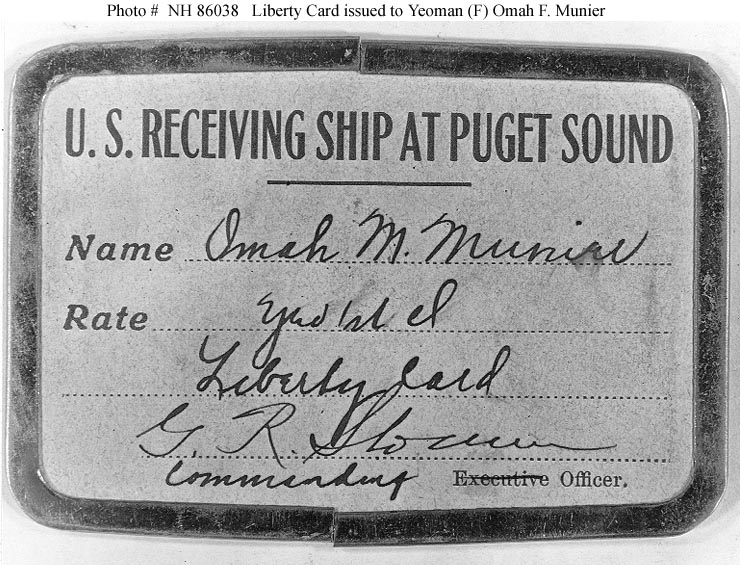 Photo # NH 86038 Liberty Card issued to Yeoman (F) Omah F. Munier
U. S. RECEIVING SHIP AT PUGET SOUND
Name Omah M. Munier
Rate Yeo 1st cl
Liberty Card
G. R. Slocum
Commanding Executive Officer.